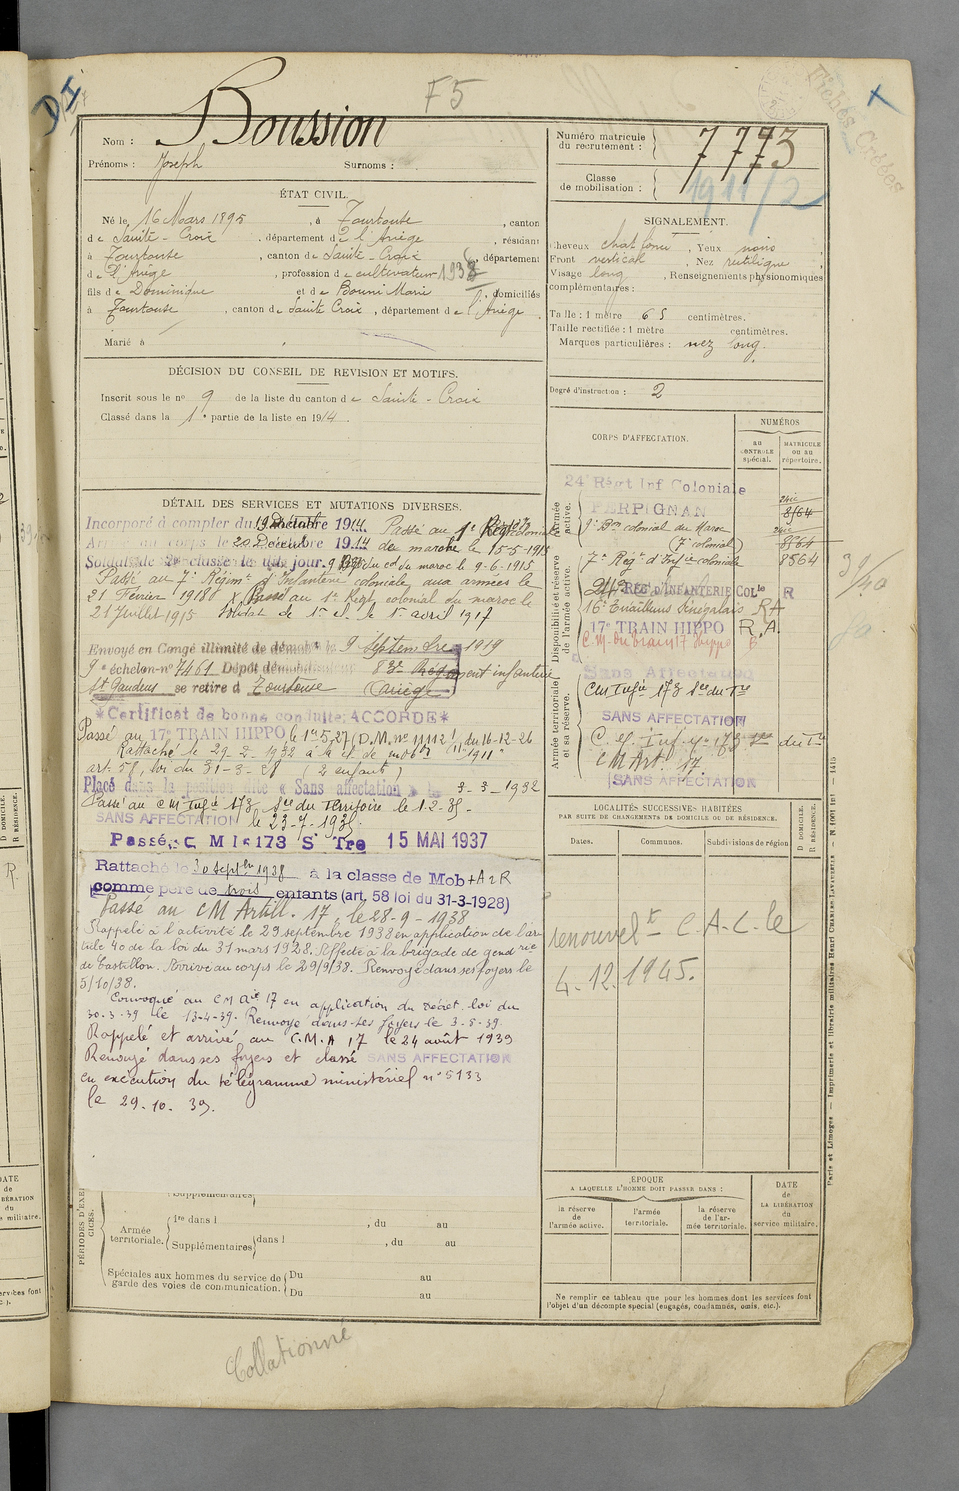 F5
Nom : Boussion
Prénoms : Joseph Surnoms :
ÉTAT CIVIL.
Né le 16 Mars 1895, à Tourtouse, canton
de Sainte-Croix, département de l'Ariège, résidant
à Tourtouse, canton de Sainte-Croix, département
de l'Ariège, profession de cultivateur 1938
fils de Dominique et de Bouni Marie, domiciliés
à Tourtouse, canton de Sainte Croix, département de l'Ariège.
Marié à
DÉCISION DU CONSEIL DE REVISION ET MOTIFS.
Inscrit sous le n° 9 de la liste du canton de Sainte-Croix
Classé dans la 1e partie de la liste en 1914.
DÉTAIL DES SERVICES ET MUTATIONS DIVERSES.
Incorporé à compter du 19 1914 Passé au
Arrivé au corps le 20 1914 de marche le 15-5-1915
Soldat de 2e classe le dit jour. 9 du maroc le 9-6-1915
Passé au 7e Régimt d'Infanterie coloniale aux armées le
21 Février 1918 X Passé au 1er Regt colonial du maroc le
21 Juillet 1915 Soldat de 1re cl. le 1er avril 1917
Envoyé en Congé illimité de démob le 9 Septembre 1919
9e échelon n° 7461 Dépôt démobilisateur 83e Régiment infanterie
St Gaudens se retire à Tourtouse (Ariège)
*Certificat de bonne conduite: ACCORDÉ*
Passé au 17e TRAIN HIPPO le 1er 5-27 (D.M. n° 11112 du 16-12-26
Rattaché le 29-2-1932 à la cl de mobon 1911
art. 58, loi du 31-3-28 2 enfants)
Placé dans la position dite « Sans affectation » le 3-3-1932
Passé au CM Infie 173, Sec du Territoire le 1-2-35-
SANS AFFECTATION le 23-7-1935.
Passé C M I 173 S Tre 15 MAI 1937
Rattaché le 30 septbre 1938 à la classe de Mob + A 2 R
comme père de trois enfants (art. 58 loi du 31-3-1928)
Passé au CM Artill. 17, le 28-9-1938
Rappelé à l'activité le 29 septembre 1938 en application de l'ar-
ticle 40 de la loi du 31 mars 1928. Affecté à la brigade de gendrie
de Castillon. Arrivé au corps le 29/9/38. Renvoyé dans ses foyers le
5/10/38.
Convoqué au CM Aie 17 en application du Décret-loi du
30-3-39 le 13-4-39. Renvoyé dans ses foyers le 3-5-39.
Rappelé et arrivé au C.M.A 17 le 24 août 1939
Renvoyé dans ses foyers et classé SANS AFFECTATION
en exécution du télégramme ministériel n° 5133
le 29.10.39.
PÉRIODES D'EXERCICES.
Supplémentaires
Armée territoriale.
1re dans l , du au
Supplémentaires dans l , du au
Spéciales aux hommes du service de garde des voies de communication.
Du au
Du au
Collationné
Numéro matricule du recrutement : 7773
Classe de mobilisation : 1911/2
SIGNALEMENT.
Cheveux chat foncé, Yeux noirs
Front vertical, Nez rectiligne
Visage long, Renseignements physionomiques
complémentaires :
Taille : 1 mètre 65 centimètres.
Taille rectifiée : 1 mètre centimètres.
Marques particulières : nez long.
Degré d'instruction : 2
CORPS D'AFFECTATION.
NUMÉROS
AU CONTROLE spécial.
MATRICULE OU AU répertoire.
Armée active.
24e Régt Inf Coloniale
PERPIGNAN 8564
1er Bon colonial du Maroc
(7e colonial) 8564
7e Régt d'Infie coloniale 8564
Disponibilité et réserve de l'armée active.
24e REG. D'INFANTERIE COLle R
16e Tirailleurs Sénégalais RA
17e TRAIN HIPPO R.A.
C.M. du train 17 Hippo
Sans Affectation
Armée territoriale et sa réserve.
CM Infie 173 Sec du Tre
SANS AFFECTATION
C. M. Inf. n° 173 Sec du Tre
CM Art. 17.
SANS AFFECTATION
LOCALITÉS SUCCESSIVES HABITÉES
PAR SUITE DE CHANGEMENTS DE DOMICILE OU DE RÉSIDENCE.
Dates. Communes. Subdivisions de région. D. DOMICILE. R. RÉSIDENCE.
renouvelt C.A.C. le
4.12.1945.
ÉPOQUE
A LAQUELLE L'HOMME DOIT PASSER DANS :
la réserve de l'armée active.
l'armée territoriale.
la réserve de l'armée territoriale.
DATE de LA LIBÉRATION du service militaire.
Ne remplir ce tableau que pour les hommes dont les services font
l'objet d'un décompte spécial (engagés, condamnés, omis, etc.).
Paris et Limoges. — Imprimerie et librairie militaires Henri CHARLES-LAVAUZELLE